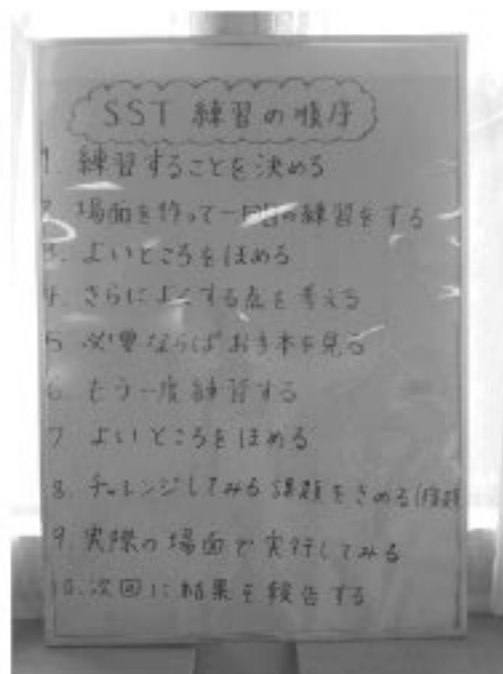 SST 練習の順序
1. 練習することを決める
2. 場面を作って一回目の練習をする
3. よいところをほめる
4. さらによくする点を考える
5 必要ならばお手本を見る
6 もう一度練習する
7 よいところをほめる
8. チャレンジしてみる課題をきめる(宿題
9. 実際の場面で実行してみる
10. 次回に結果を報告する